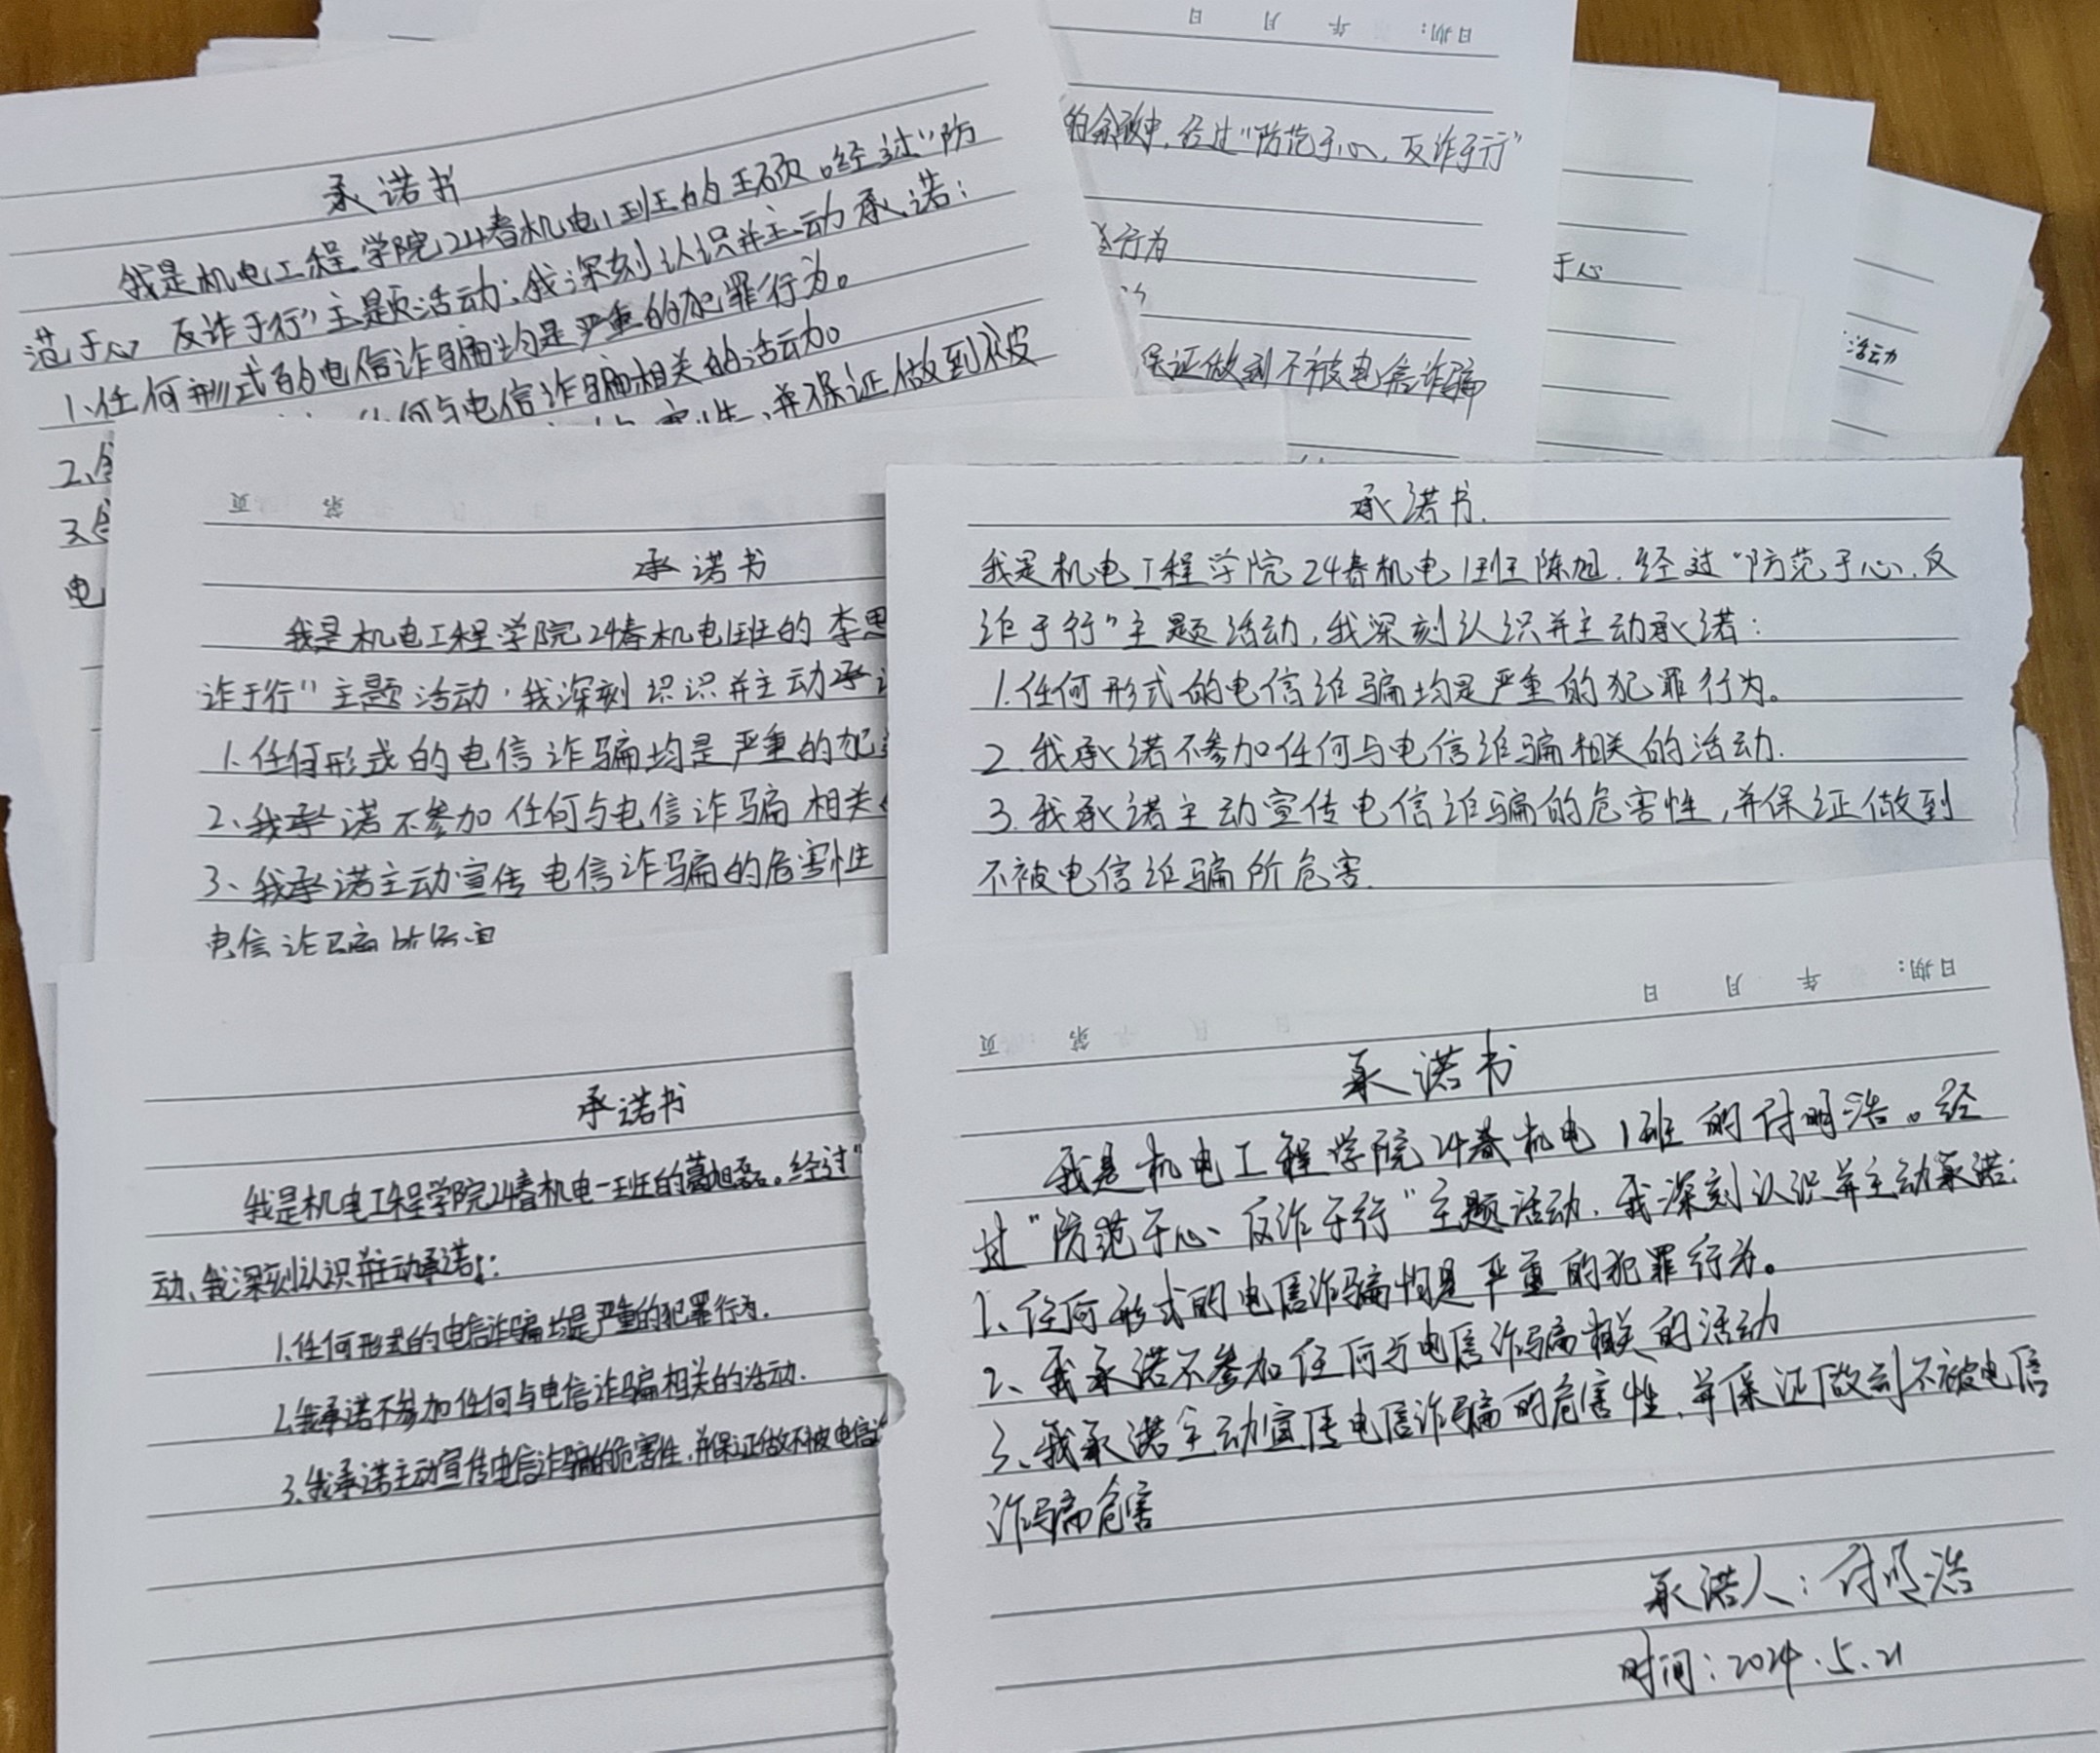 承诺书
我是机电工程学院24春机电1班的王硕。经过“防
范于心 反诈于行”主题活动,我深刻认识并主动承诺:
1、任何形式的电信诈骗均是严重的犯罪行为。
何与电信诈骗相关的活动。
害性,并保证做到不被
2、
3、
电
日期: 年 月 日
经过“防范于心、反诈于行”
行为
保证做到不被电信诈骗
于心
活动
第 页
承诺书
我是机电工程学院24春机电1班的李思
诈于行”主题活动,我深刻识识并主动承
1.任何形式的电信诈骗均是严重的犯
2、我承诺不参加任何与电信诈骗相关
3、我承诺主动宣传电信诈骗的危害性
电信诈骗所危害
承诺书.
我是机电工程学院24春机电1班陈旭.经过“防范于心、反
诈于行”主题活动,我深刻认识并主动承诺:
1.任何形式的电信诈骗均是严重的犯罪行为。
2.我承诺不参加任何与电信诈骗相关的活动.
3.我承诺主动宣传电信诈骗的危害性,并保证做到
不被电信诈骗所危害.
承诺书
我是机电工程学院24春机电一班的葛旭磊。经过“
动、我深刻认识并主动承诺:
1.任何形式的电信诈骗均是严重的犯罪行为.
2.我承诺不参加任何与电信诈骗相关的活动.
3.我承诺主动宣传电信诈骗的危害性,并保证做不被电信
日期: 年 月 日
第 页
承诺书
我是机电工程学院24春机电1班的付明浩。经
过“防范于心、反诈于行”主题活动,我深刻认识并主动承诺:
1、任何形式的电信诈骗均是严重的犯罪行为。
2、我承诺不参加任何与电信诈骗相关的活动
3、我承诺主动宣传电信诈骗的危害性,并保证做到不被电信
诈骗危害
承诺人:付明浩
时间:2024.5.21